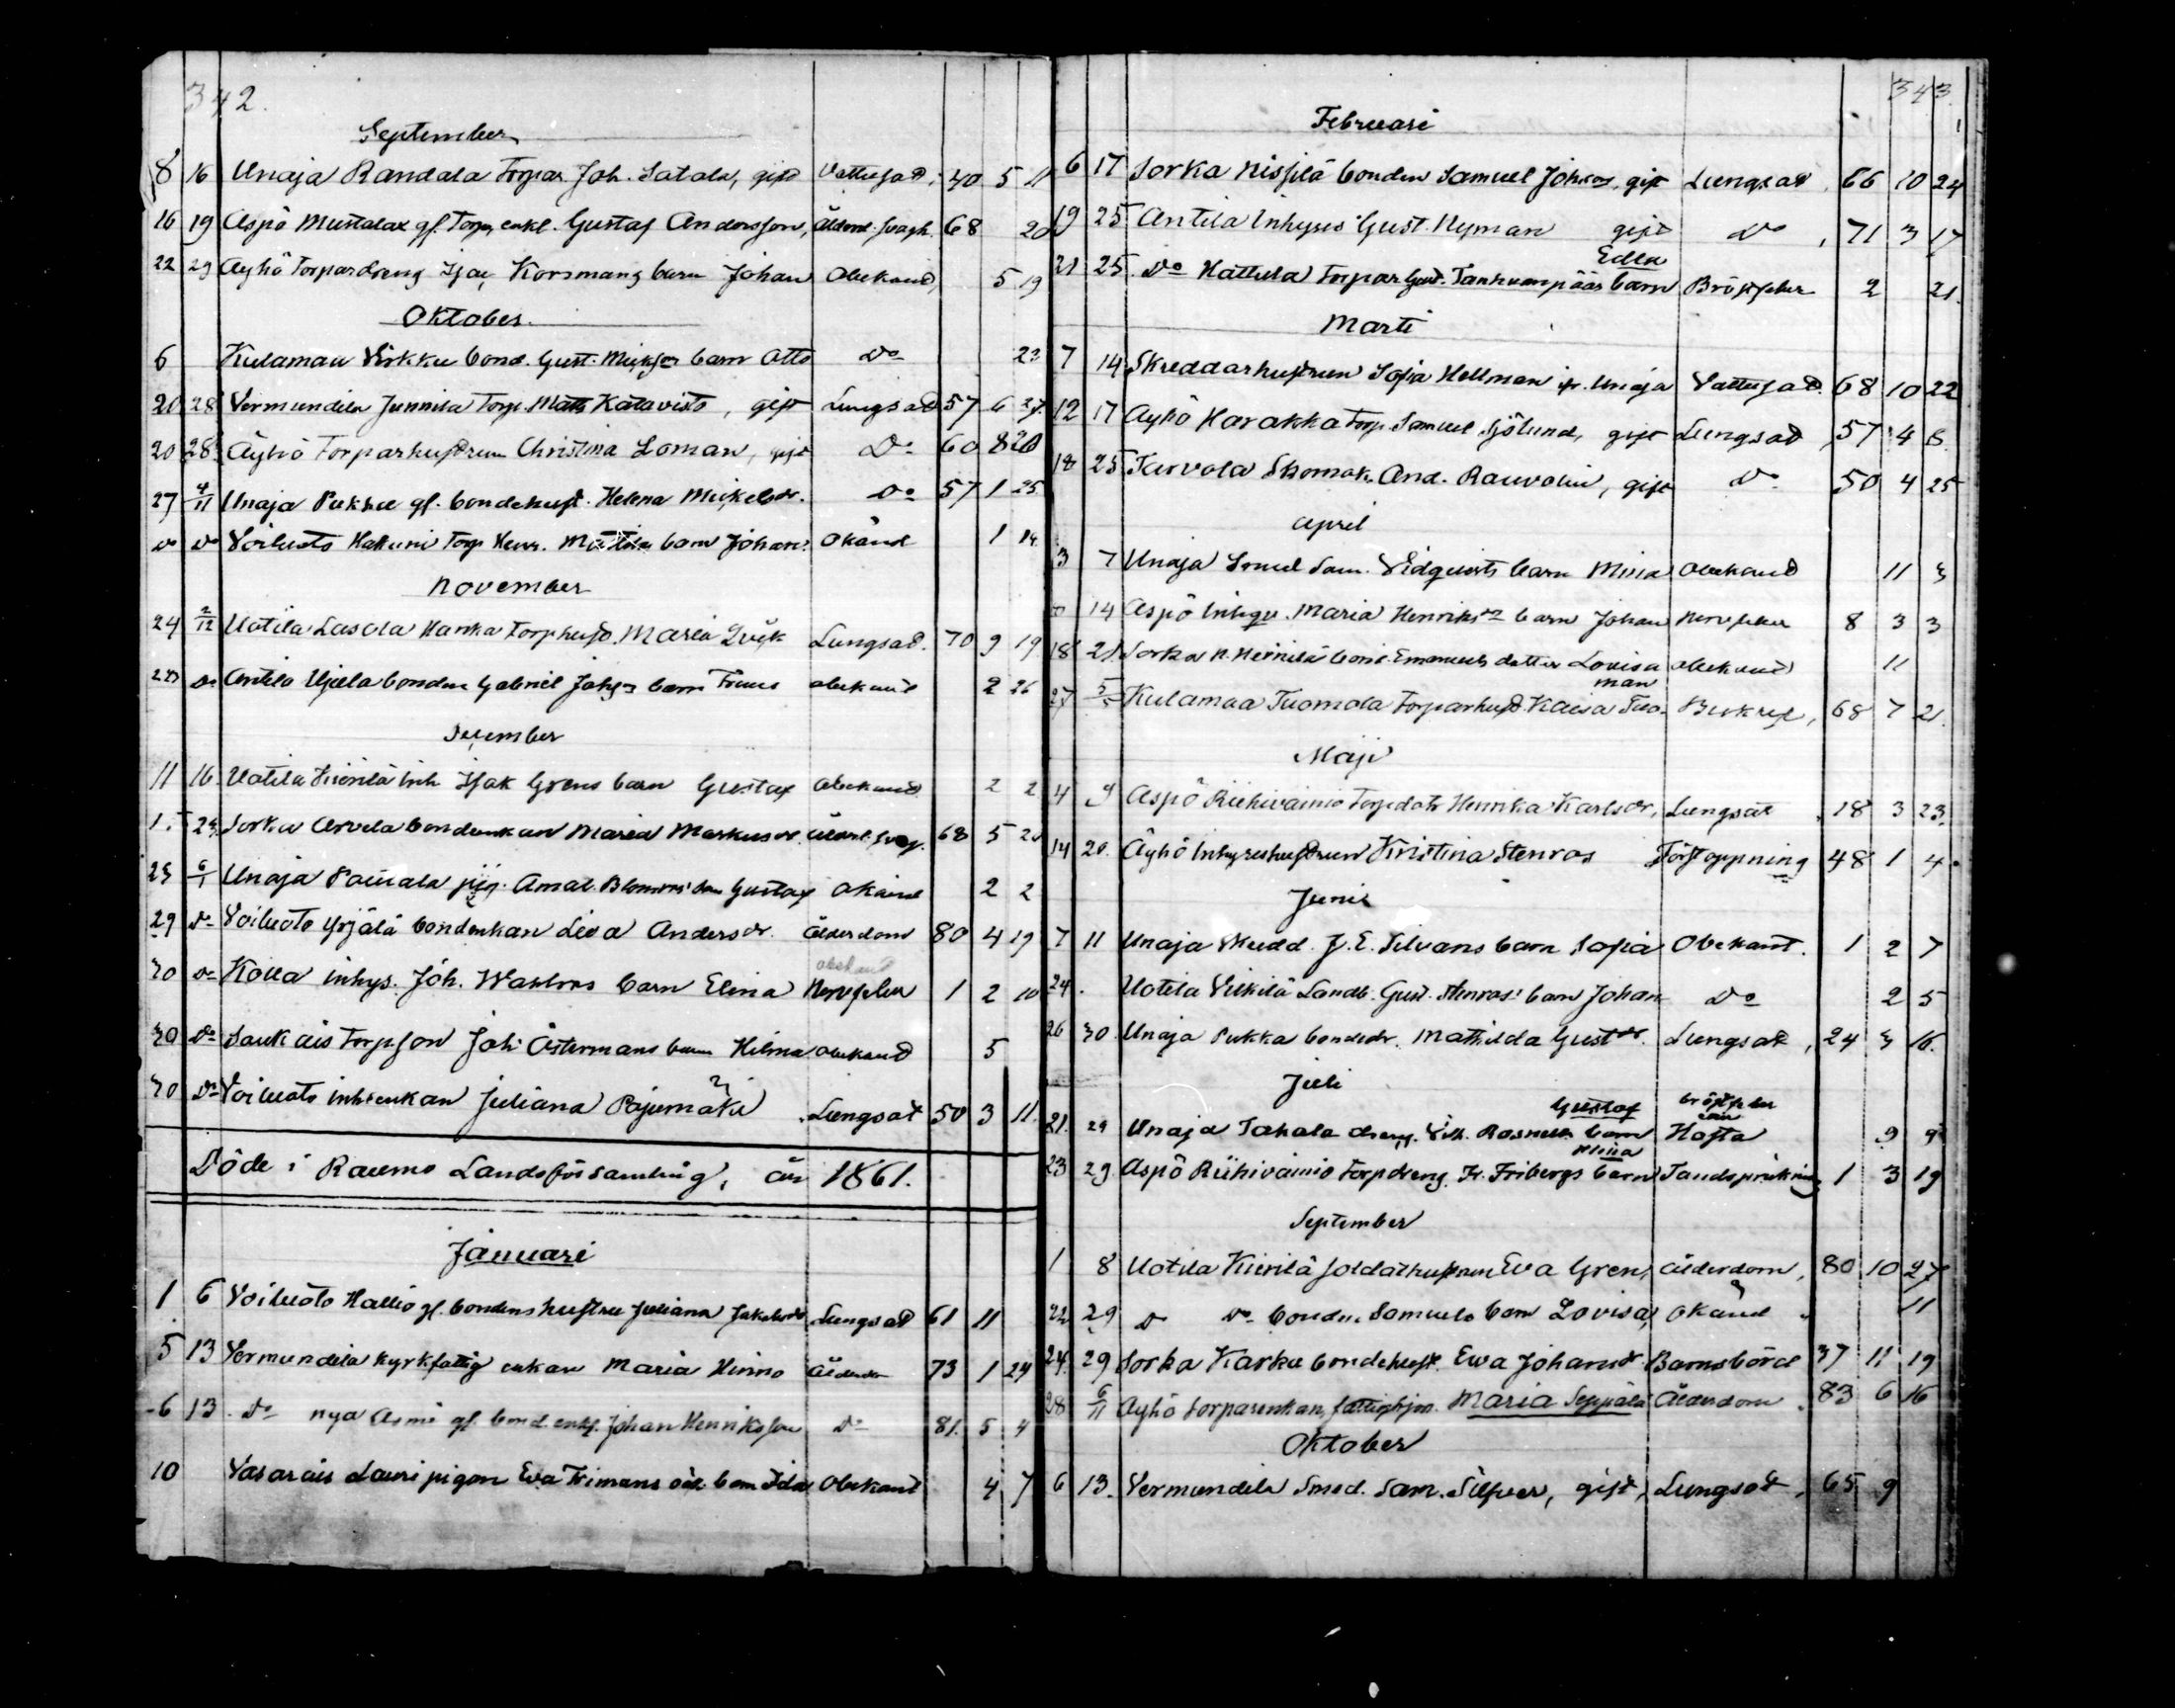 342.
September
8 16 Unaja Randala Torpar Joh. Satala, gift Vattusod, 40 5 11
16 19 Aspö Mustalax gl. Torp, enkl. Gustaf Andersson, Ålderd. svagh. 68 20
22 29 Äyhö Torpardreng Isac Korsmans barn Johan Obekand, 5 19
Oktober.
6 Kulamaa Sirkku bond. Gust. barn Otto Do
20 28 Vermundila Junnila Torp. Matts Katavisto, gift Lungsot 57 6 27.
20 28 Äyhö Torparhustrun Christina Loman, gift Do 60 8 20
27 4/11 Unaja Pukkee gl. bondehust. Helena Mickelsdr. Do 57 1 25
Do Do Voiluoto Hakuni Torp Henr. Mattila barn Johan Okänd 1 14
November
24 2/12 Uotila Lasola Hanka Torphust. Maria Qvick Lungsot. 70 9 19
Do Antila Ujula bonden Gabriel Johss barn Frans obekant 2 26
December
11 16 Uotila Kierilä inh Isak Grens barn Gustaf obekand 2 2
24 Sorka Arvela bondeenkan Maria Markusdr. Ålderd. svag. 68 5 20
25 6/1 Unaja Pamala pig. Amal. Blomros' son Gustaf Okänd 2 2
29 Do Voiluoto Yrjälä bondenkan Lisa Andersdr. Ålderdom 80 4 19
obekand
30 Do Kolla inhys. Joh. Wahlros barn Elina Nervfeber 1 2 10
30 Do Saukais Torpson Joh. Östermans barn Hilma obekand 5
30 Do Voiluoto inhs enkan Juliana Pajumäki Lungsot 50 3 11.
Döde i Raumo Landsförsamling, år 1861.
Januari
1 6 Voiluoto Hallio gl. bondens hustru Juliana Jakobsdr Lungsot 61 11
5 13 Vermundila kyrkfattig enkan Maria Hinno Ålderdom 73 1 24
6 13. Do nya Asmi gl. bond. enkl. Johan Henriksson Do 81. 5 4
10 Vasarais Lauri pigan Eva Frimans oä. barn Ida Obekant 4 7
343.
Februari
6 17 Sorka Nissilä bonden Samuel Johnsos, gift Lungsot, 66 10 24
19 25 Antila Inhyses Gust. Nyman gift Do, 71 3 17
Edla
21 25. Do Hattula Torpar Gust. Tanhuanpääs barn Bröstfeber 2 21.
Marti
7 14 Skreddarhustrun Sofia Hellman fr. Unaja Vattusot. 68 10 22
12 17 Äyhö Harakka Torp. Samuel Sjölund, gift Lungsot, 57 4 8.
18 25 Turvola Skomak. And. Rauvolin, gift Do 50 4 25
April
3 7 Unaja Smed Sam. Lidqvists barn Mina Obekand 11 3
8 14 Aspö Inhqv. Maria Henriksdr barn Johan Nervfeber 8 3 3
18 21. Sorka N. Heinilä bond. Emanuels dotter Lovisa obekand 11
man
27 5/5 Kulamaa Tuomola Torparhust. Kaisa Tuo- 68 7 21
Maji
4 9 Aspö Riihivainio Torpdotr Henrika Karlsdr, Lungsot. 18 3 23.
14 20. Äyhö Inhyseshustrun Kristina Stenros Förstoppning 48 1 4.
Junii
7 11 Unaja Skredd. J. E. Silvans barn Sofia Obekant. 1 2 7
24. Uotila Vilkilä Landb. Gust. Stenros' barn Johan Do 2 5
26 30. Unaja Pukka bondedr. Mathilda Gustdr. Lungsot, 24 3 16.
Juli
Gustaf bröstfeber
21. 29 Unaja Tahala dreng. Vilh. Rosnells barn Hosta 9 9
Mina
23 29. Aspö Riihivainio Torpdreng. Fr. Fribergs barn Tandsprickning 1 3 19
September
1 8 Uotila Kierilä Soldathustrun Eva Gren, Ålderdom, 80 10 27
22 29 Do Do bonden Samuels barn Lovisa, Okänd 11
24. 29 Sorka Karku bondehust. Ewa Johansdr. Barnsbörd 37 11 19
28 6/11 Äyhö Torparenkan, fattighjon. Maria Seppälä Ålderdom. 83 6 16
Oktober
6 13. Vermundila Smed. Sam. Silfver, gift, Lungsot, 65 9